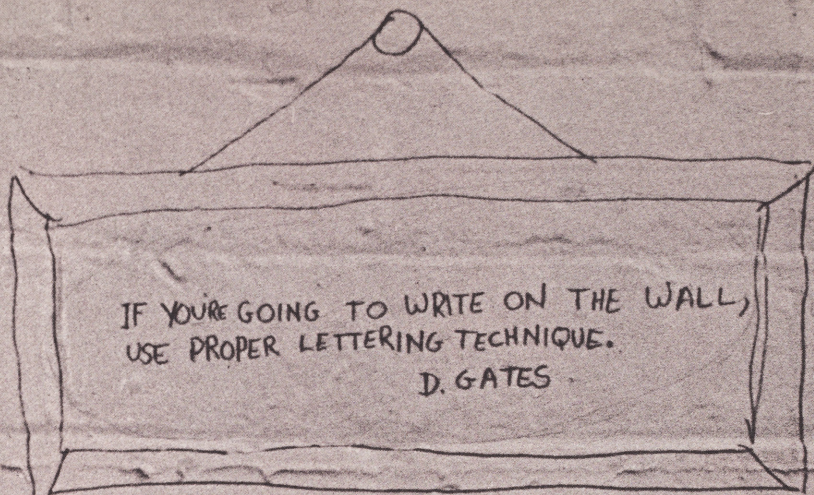 IF YOU'RE GOING TO WRITE ON THE WALL,
USE PROPER LETTERING TECHNIQUE.
D. GATES